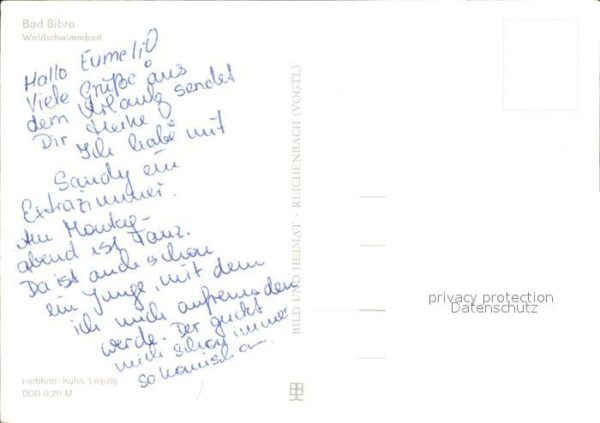 Bad Bibra
Waldschwimmbad
Hallo Eumeli!
Viele Grüße aus
dem Urlaub sendet
Dir Heike!
Ich habe mit
Sandy ein
Extrazimmer.
Am Montag-
abend ist Tanz.
Da ist auch schon
ein Junge, mit dem
ich mich anfreunden
werde. Der guckt
mich schon immer
so komisch an.
Farbfoto: Kuhn, Leipzig
DDR 0,20 M
BILD UND HEIMAT - REICHENBACH (VOGTL)
privacy protection
Datenschutz